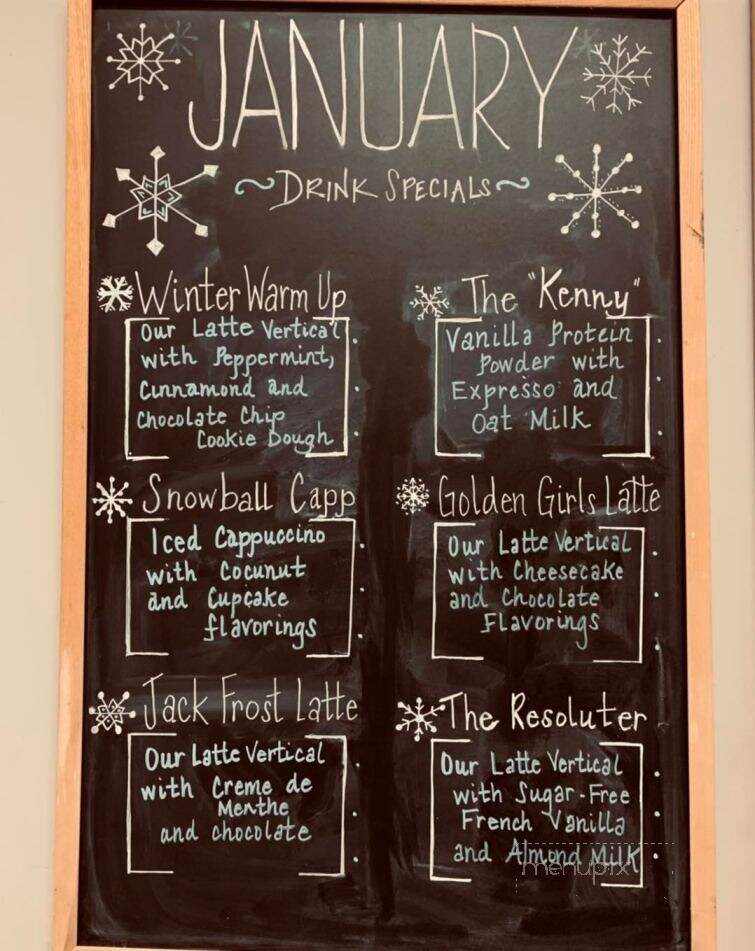 JANUARY
~DRINK SPECIALS~
Winter Warm Up
Our Latte Vertical
with Peppermint,
Cinnamond and
Chocolate Chip
Cookie Dough
The "Kenny"
Vanilla Protein
Powder with
Expresso and
Oat Milk
Snowball Capp
Iced Cappuccino
with Cocunut
and Cupcake
flavorings
Golden Girls Latte
Our Latte Vertical
with Cheesecake
and Chocolate
Flavorings
Jack Frost Latte
Our Latte Vertical
with Creme de
Menthe
and chocolate
The Resoluter
Our Latte Vertical
with Sugar-Free
French Vanilla
and Almond Milk
menupix